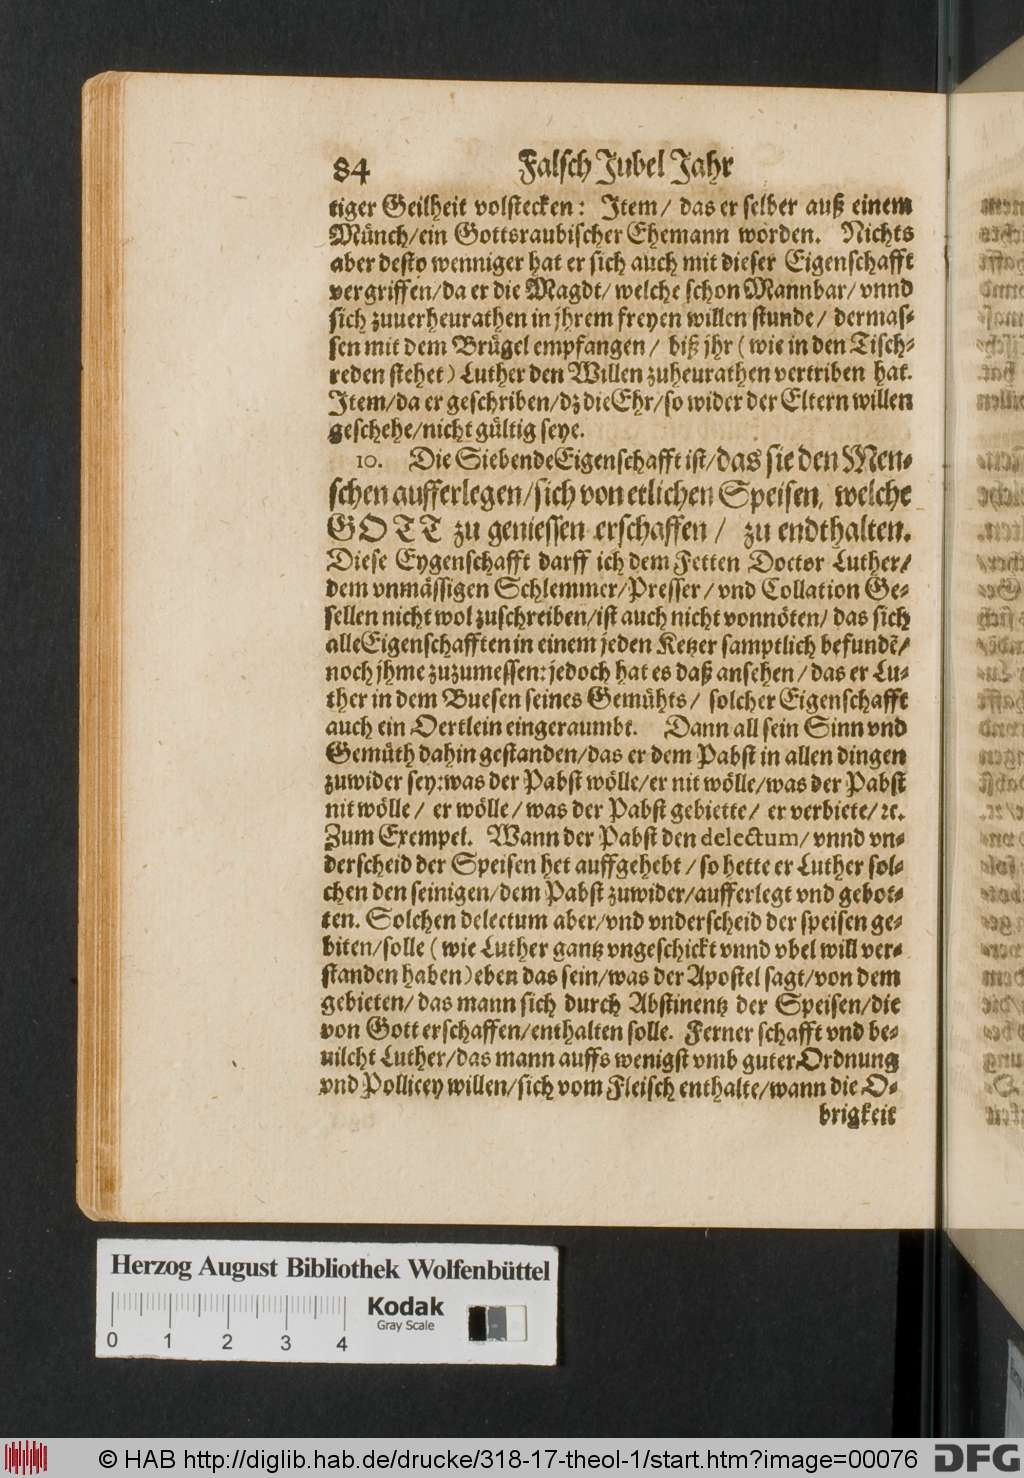 84 Falsch Jubel Jahr
tiger Geilheit volstecken: Item/ das er selber auß einem
Münch/ein Gottsraubischer Ehemann worden. Nichts
aber desto wenniger hat er sich auch mit dieser Eigenschafft
vergriffen/da er die Magdt/ welche schon Mannbar/ vnnd
sich zuuerheurathen in jhrem freyen willen stunde/ dermas-
sen mit dem Brügel empfangen/ biß jhr (wie in den Tisch-
reden stehet) Luther den Willen zuheurathen vertriben hat.
Item/da er geschriben/dz die Ehr/so wider der Eltern willen
geschehe/nicht gültig seye.
10. Die Siebende Eigenschafft ist/das sie den Men-
schen aufferlegen/sich von etlichen Speisen, welche
GOTT zu geniessen erschaffen/ zu endthalten.
Diese Eygenschafft darff ich dem Fetten Doctor Luther/
dem vnmässigen Schlemmer/Presser/ vnd Collation Ge-
sellen nicht wol zuschreiben/ist auch nicht vonnöten/ das sich
alle Eigenschafften in einem jeden Ketzer samptlich befundẽ/
noch jhme zuzumessen: jedoch hat es daß ansehen/das er Lu-
ther in dem Buesen seines Gemühts/ solcher Eigenschafft
auch ein Oertlein eingeraumbt. Dann all sein Sinn vnd
Gemüth dahin gestanden/das er dem Pabst in allen dingen
zuwider sey: was der Pabst wölle/er nit wölle/was der Pabst
nit wölle/ er wölle/was der Pabst gebiette/ er verbiete/ ꝛc.
Zum Exempel. Wann der Pabst den delectum/ vnnd vn-
derscheid der Speisen het auffgehebt/so hette er Luther sol-
chen den seinigen/dem Pabst zuwider/aufferlegt vnd gebot-
ten. Solchen delectum aber/vnd vnderscheid der speisen ge-
biten/solle (wie Luther gantz vngeschickt vnnd vbel will ver-
standen haben) eben das sein/was der Apostel sagt/von dem
gebieten/das mann sich durch Abstinentz der Speisen/die
von Gott erschaffen/enthalten solle. Ferner schafft vnd be-
uilcht Luther/das mann auffs wenigst vmb guter Ordnung
vnd Pollicey willen/sich vom Fleisch enthalte/wann die O-
brigkeit
Herzog August Bibliothek Wolfenbüttel
Kodak
Gray Scale
0 1 2 3 4
© HAB http://diglib.hab.de/drucke/318-17-theol-1/start.htm?image=00076
DFG